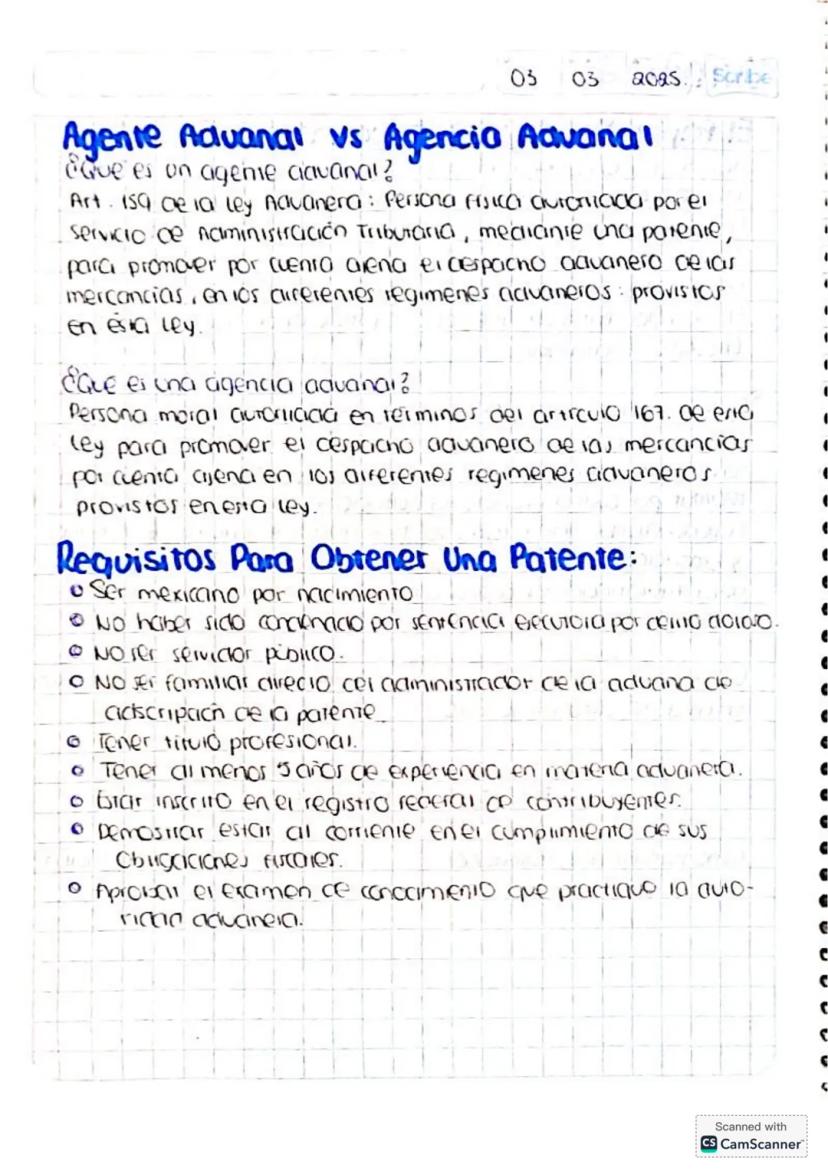 03 03 2025. Scribe
Agente Aduanal vs Agencia Aduanal
¿Que es un agente aduanal?
Art. 159 de la Ley Aduanera: Persona física autorizada por el
servicio de Administración Tributaria, mediante una patente,
para promover por cuenta ajena el despacho aduanero de las
mercancías, en los diferentes regimenes aduaneros provistos
en ésta Ley.
¿Que es una agencia aduanal?
Persona moral autorizada en términos del artículo 167. de esta
Ley para promover el despacho aduanero de las mercancías
por cuenta ajena en los diferentes regimenes aduaneros
provistos en esta Ley.
Requisitos Para Obtener Una Patente:
Ser mexicano por nacimiento
No haber sido condenado por sentencia ejecutoria por delito doloso.
No ser servidor público.
No ser familiar directo del administrador de la aduana de
adscripción de la patente
Tener titulo profesional.
Tener al menos 5 años de experiencia en materia aduanera.
Estar inscrito en el registro federal de contribuyentes.
Demostrar estar al corriente en el cumplimiento de sus
Obligaciones fiscales.
Aprobar el examen de conocimiento que practique la auto-
ridad aduanera.
Scanned with
CS CamScanner